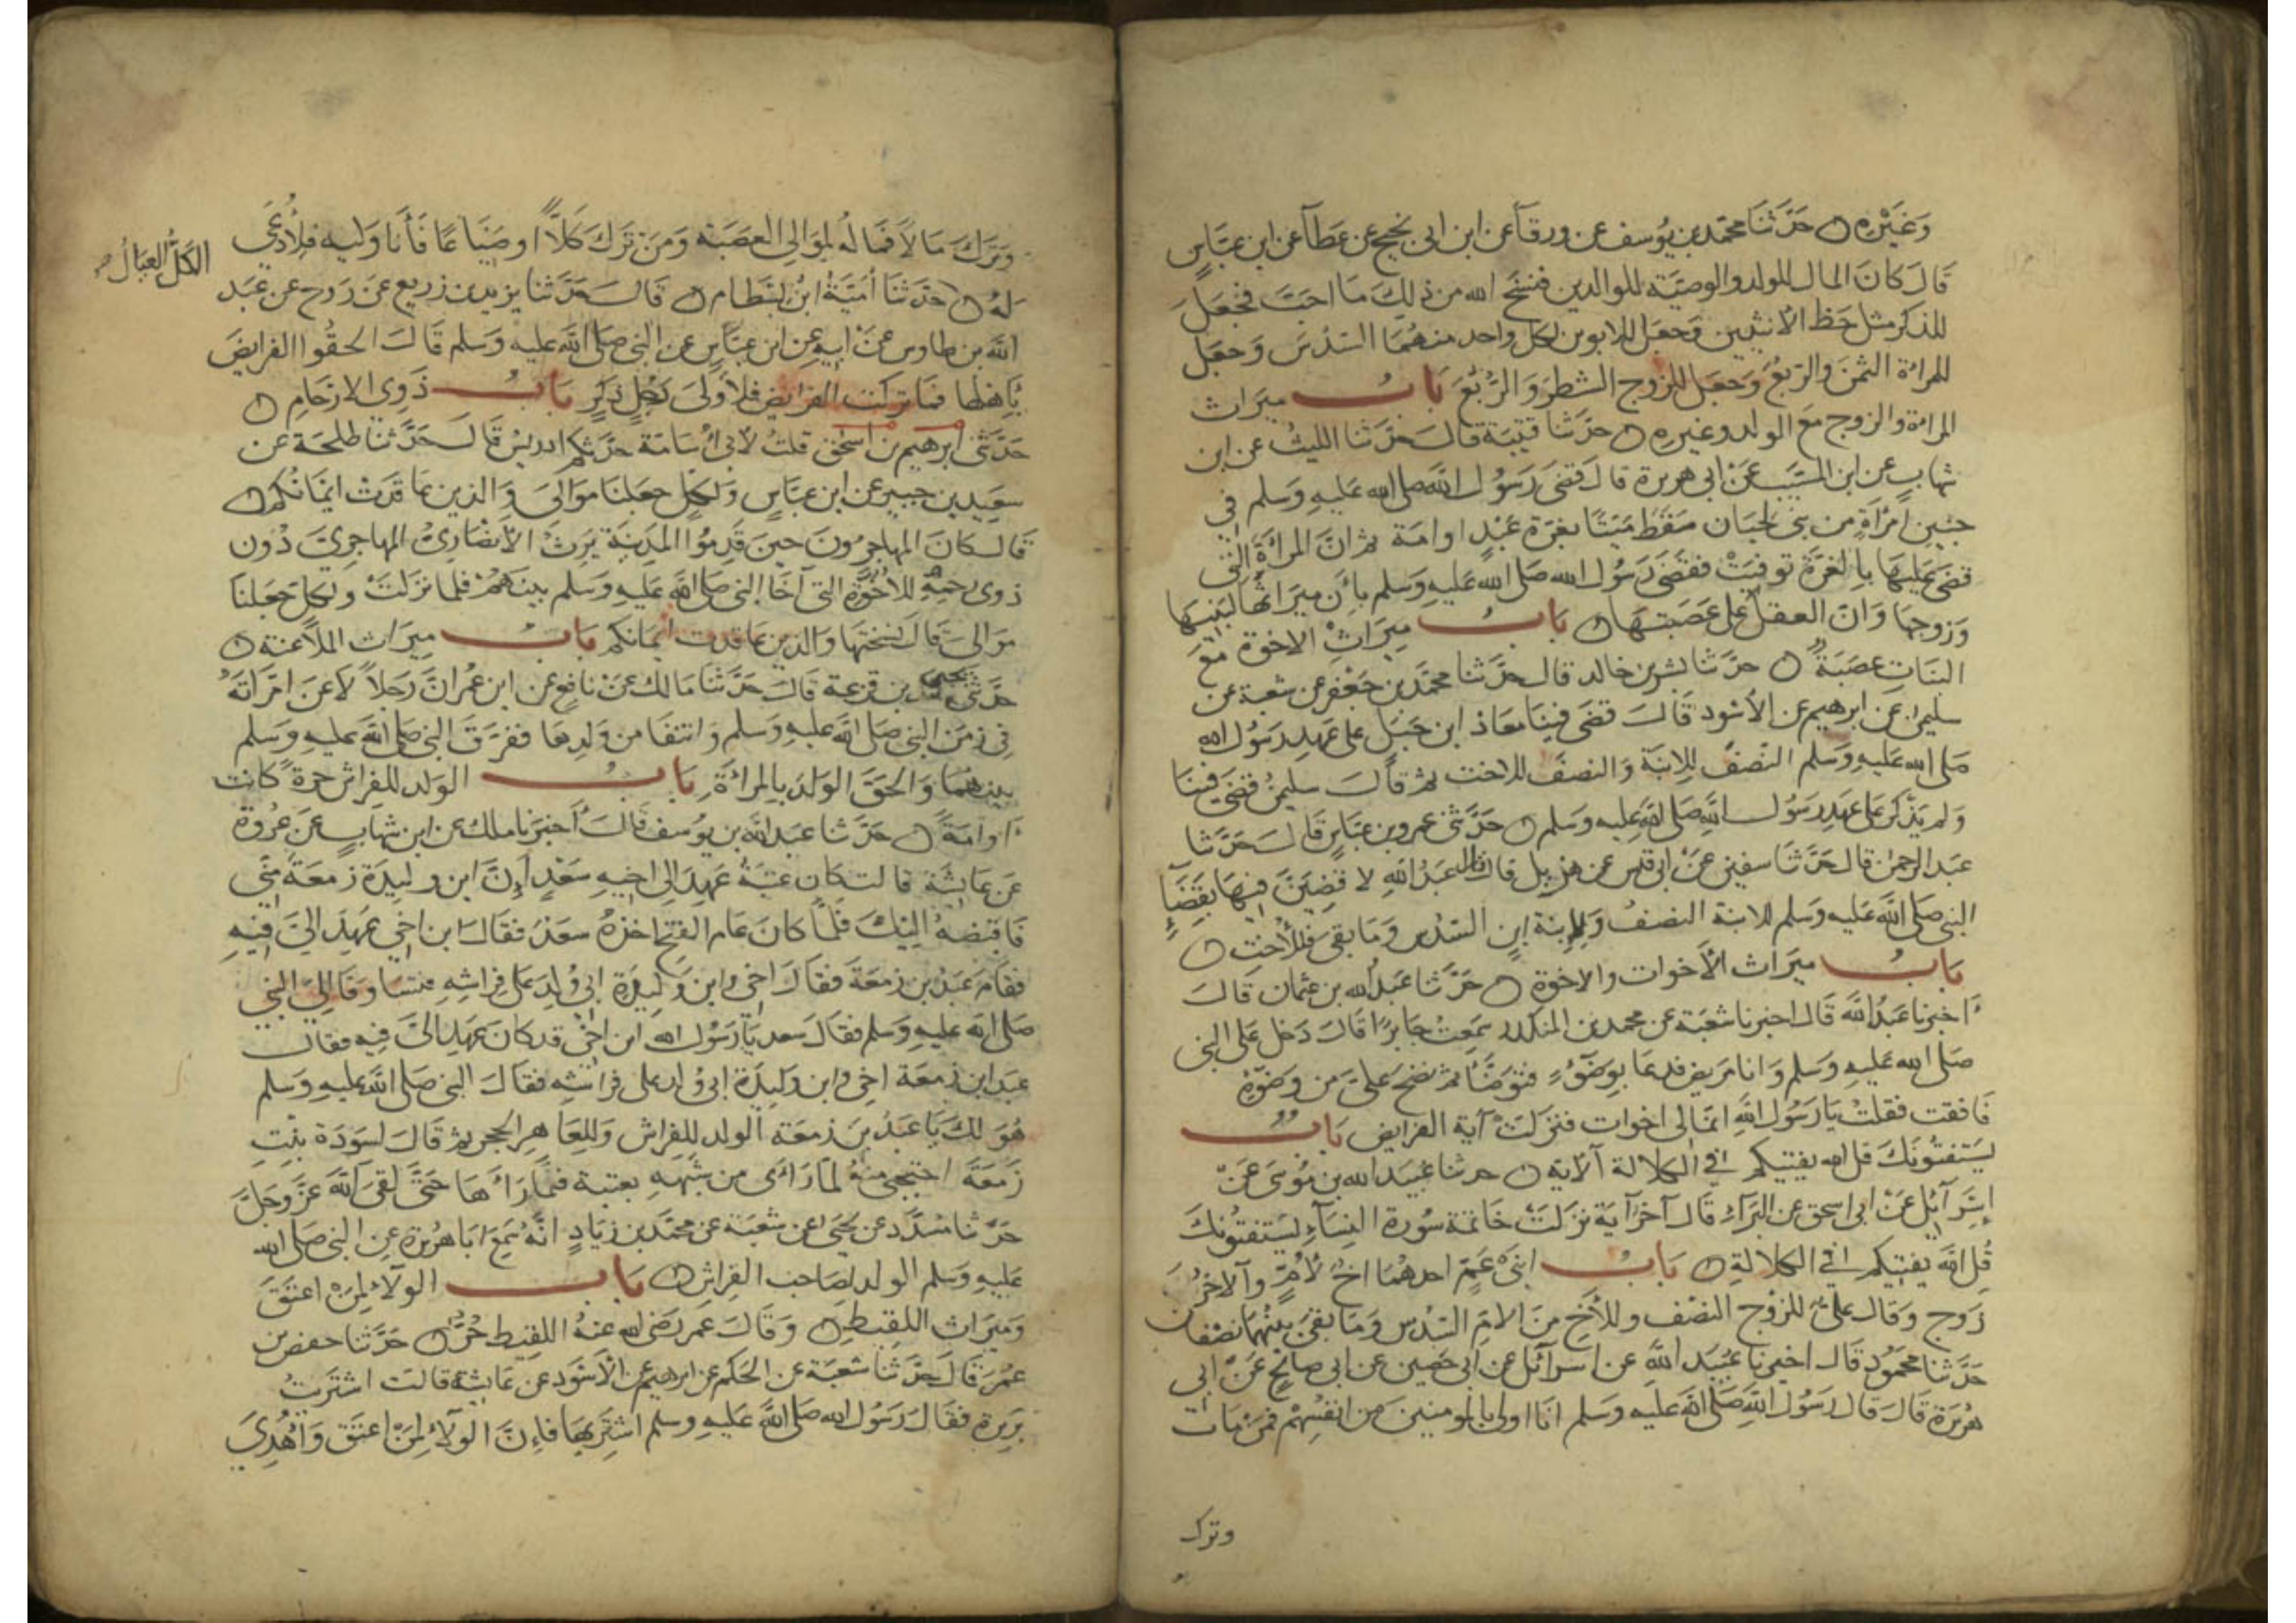 وَغَيْرِهِ حَدَّثَنَا محمد بن يُوسف عن ورقآ عن ابن ابى نجيح عن عَطآ عن ابن عبَّاسٍ
قَالَ كانَ المال للولد والوصيَّة للوالدين فنسَخ الله من ذلِكَ مَا احَبَّ فجعَلَ
للذكر مثل حَظ الأنثيين وَجعَل للابوين لكل واحد منهُمَا السّدُسَ وَجعَل
للمراة الثمنَ والربعَ وَجعَل للزوج الشطرَ وَالرّبُعَ بَابُ ميرَاث
المراة والزوج مَعَ الولد وغيره حدّثنا قتيبَة قالَ حَدّثنا الليثُ عن ابن
شهاب عن ابن المسيّب عَنْ ابى هريرة قالَ قضَى رَسُولُ الله صلى الله عَليهِ وَسَلم فى
جنين امْرَاةٍ من بنى لحيَان سَقطَ مَيّتًا بغرّة عَبْدٍ اوامَة ثم انَّ المرأةَ التى
قضىَ عَليهَا بِالغرّة توفيَتْ فقضىَ رَسُول الله صَلى الله عَليهِ وَسَلم بِأنَ ميرَاثهَا لبَنيهَا
وَزوجهَا وَانّ العقلَ على عَصَبتهَا بَابُ ميرَاثِ الاخوة مَعَ
البنَاتِ عصَبَةً حدّثنا بشر بن خالد قال حدّثنا محمَّد بن جَعْفر عن شعبة عن
سليمن عَن ابرهيم عن الأسْود قالَ قضىَ فينا معَاذ ابن جَبَل على عَهدِ رَسُول الله
صَلى الله عَليهِ وَسَلم النّصفُ لِلابنَة وَالنصفَ للاخت ثم قالَ سليمنُ قضىَ فينَا
وَلم يَذكر على عَهدِ رَسُول الله صَلى الله عليه وَسلم حَدّثنى عمرو بن عبَّاسٍ قَالَ حَدَّثنا
عبد الرحمن قال حدّثنا سفين عَنْ ابى قيس عن هزيل قال قال عَبْدُ اللهِ لاقضِيَنَّ فيهَا بقَضَاءِ
النبى صَلى الله عَليه وسَلم للابنة النصفُ وَلابنة ابنٍ السّدُس وَمَا بقىَ فللأختِ
بَابُ ميرَاث الأخوات والاخوة حَدّثنا عَبْدُ الله بن عثمان قالَ
اخبرنا عَبْدُ الله قالَ اخبرنا شعبَة عن محمد بن المنكدر سَمِعتُ جَابرًا قَالَ دَخل عَلى النبى
صَلى الله عَليهِ وَسَلم وَانا مَريض فدعَا بِوَضُوءٍ فتوضَّأ ثم نضحَ علىَّ من وضوئه
فافقت فقلتُ يَا رَسُول الله انمَا لى اخوات فنزلَتْ آية الفرايض بَابُ
يَستفتونَكَ قل الله يفتيكم فى الكلالة الآية حدثنا عُبيد الله بن مُوسَى عَنْ
إسْرَآئيل عَنْ ابى اسحق عن البَرَآء قالَ آخر آيَة نزلتْ خاتمة سُورة النِسَآءِ يَستفتونكَ
قُل الله يفتيكم فى الكلالةِ بَابُ ابنىْ عَمٍّ احدهُمَا اخٌ لأمٍّ وَالآخرُ
زَوج وَقال علىٌّ للزوْج النصْف وللأخِ منَ الامّ السّدُس وَمَا بقىَ بينهُمَا نصْفان
حَدَّثنا محمُود قالَ اخبرنا عُبيد الله عن اسرآئل عن أبى حَصين عن ابى صالح عَنْ ابى
هريرة قَالَ قَال رَسُول الله صَلى الله عليه وَسلم انَا اولى بالمومنينَ من انفسِهمْ فمَنْ مَات
وترك
وَترَكَ مَالاً فمَالهُ لموَالِى العصَبَة وَمَنْ تَركَ كَلاًّ اوضيَاعًا فأنَا وَليه فلأدْعَى
الكَلُّ العيَالُ
لهُ حَدثنا أميَّةُ ابنُ بسْطام قالَ حَدَّثنا يَزيد بن زريع عَن رَوح عن عبَد
الله بن طاوس عَنْ ابيهِ عن ابن عبَّاسٍ عن النبى صَلى الله عليه وَسلم قَالَ الحقُوا الفرايضَ
بِأهلهَا فمَا تركَت الفرايض فلأَولَى رَجُلٍ ذكَرٍ بَابُ ذَوِى الارْحَامِ
حَدثنى ابرهيم بن اسْحق قلتُ لأبى أسَامَة حَدّثكم ادريسُ قالَ حَدّثنا طلحَة عن
سعِيد بن جبيرٍ عن ابن عبّاس وَلكلٍ جعَلنَا موَالىَ وَالذين عَاقدَتْ ايمَانُكم
قالَ كانَ المهاجرُونَ حينَ قدِمُوا المدِينَة يَرثُ الأنصَارىُ المهاجرىَّ دُونَ
ذوى رحمِهِ للأخوَّةِ التى آخَا النبى صَلى الله عَليهِ وَسَلم بينَهمْ فلمَا نزلَتْ وَلكلٍ جَعَلنَا
موَالىَ قالَ نسختهَا وَالذين عَاقدت ايمَانكم بَابُ ميرَاث الملاعنة
حَدّثنى يحيى بن قزعة قالَ حَدّثنا مَالك عنْ نافع عن ابن عُمرَ انَّ رَجلاً لاعَنَ امْرَأتهُ
فى زمَن النبى صَلى الله عليه وَسلم وَانتفَا من وَلدِهَا ففرَّقَ النبى صَلى الله عليهِ وَسَلم
بينهُمَا وَالحقَ الوَلدَ بالمرأةِ بَابُ الوَلد للفِراش حرةً كانت
اَوامَةً حَدّثنا عبد الله بن يُوسف قالَ أخبرنا ملك عن ابن شهابٍ عن عُروة
عَن عَايشَة قالت كان عتبَةُ عَهِدَ الى اخيهِ سَعْدٍ أنَّ ابن وليدَة زمعَة منّى
فاقبضهُ اليْكَ فلمّا كانَ عَام الفتح اخذهُ سعدٌ فقالَ ابن اخى عَهِدَ الىَّ فيهِ
فقامَ عَبدُ بن زمعَة فقالَ اخى وابن وَليدَة ابى وُلِدَ على فِرَاشِهِ فتسَاوقَا الىَ النبى
صَلى الله عليهِ وَسلم فقالَ سعد يَا رَسُول الله ابن اخى قد كانَ عَهدَ الىَّ فيه فقال
عبدُ ابن زمعَة اخى وابن وَليدَة ابى وُلد على فراشِهِ فقالَ النبى صَلى الله عَليهِ وَسَلم
هُوَ لكَ يَا عَبدُ بن زمعَة الولد للفراش وَللعَاهرِ الحجر ثم قالَ لسَوْدَة بنتِ
زمَعَة احتجبى منهُ لمَا رَأى من شبَههِ بعتبة فمَا رَآهَا حَتىَّ لقىَ الله عزّ وَجَلّ
حَدّثنا مُسَدَّد عن يحيَى عن شعبَة عن محمَّد بن زيَادٍ انَّهُ سَمِعَ ابَا هُريْرة عن النبى صَلى الله
عَليهِ وَسلم الولد لصَاحب الفِراشِ بَابُ الولاَء لِمَنْ اعتَقَ
وَميرَاث اللقيطِ وَقالَ عُمر رَضى الله عنهُ اللقيط حُرٌّ حَدّثنا حفص بن
عُمرَ قالَ حَدّثنا شعبَة عن الحَكم عن ابرهيم عن الأسْود عن عَايشة قالت اشتريتُ
بَرِيرة فقالَ رَسُول الله صَلى الله عَليهِ وسَلم اشترِيهَا فإنَّ الولاَء لِمَنْ اعتَق وَاُهْدِىَ